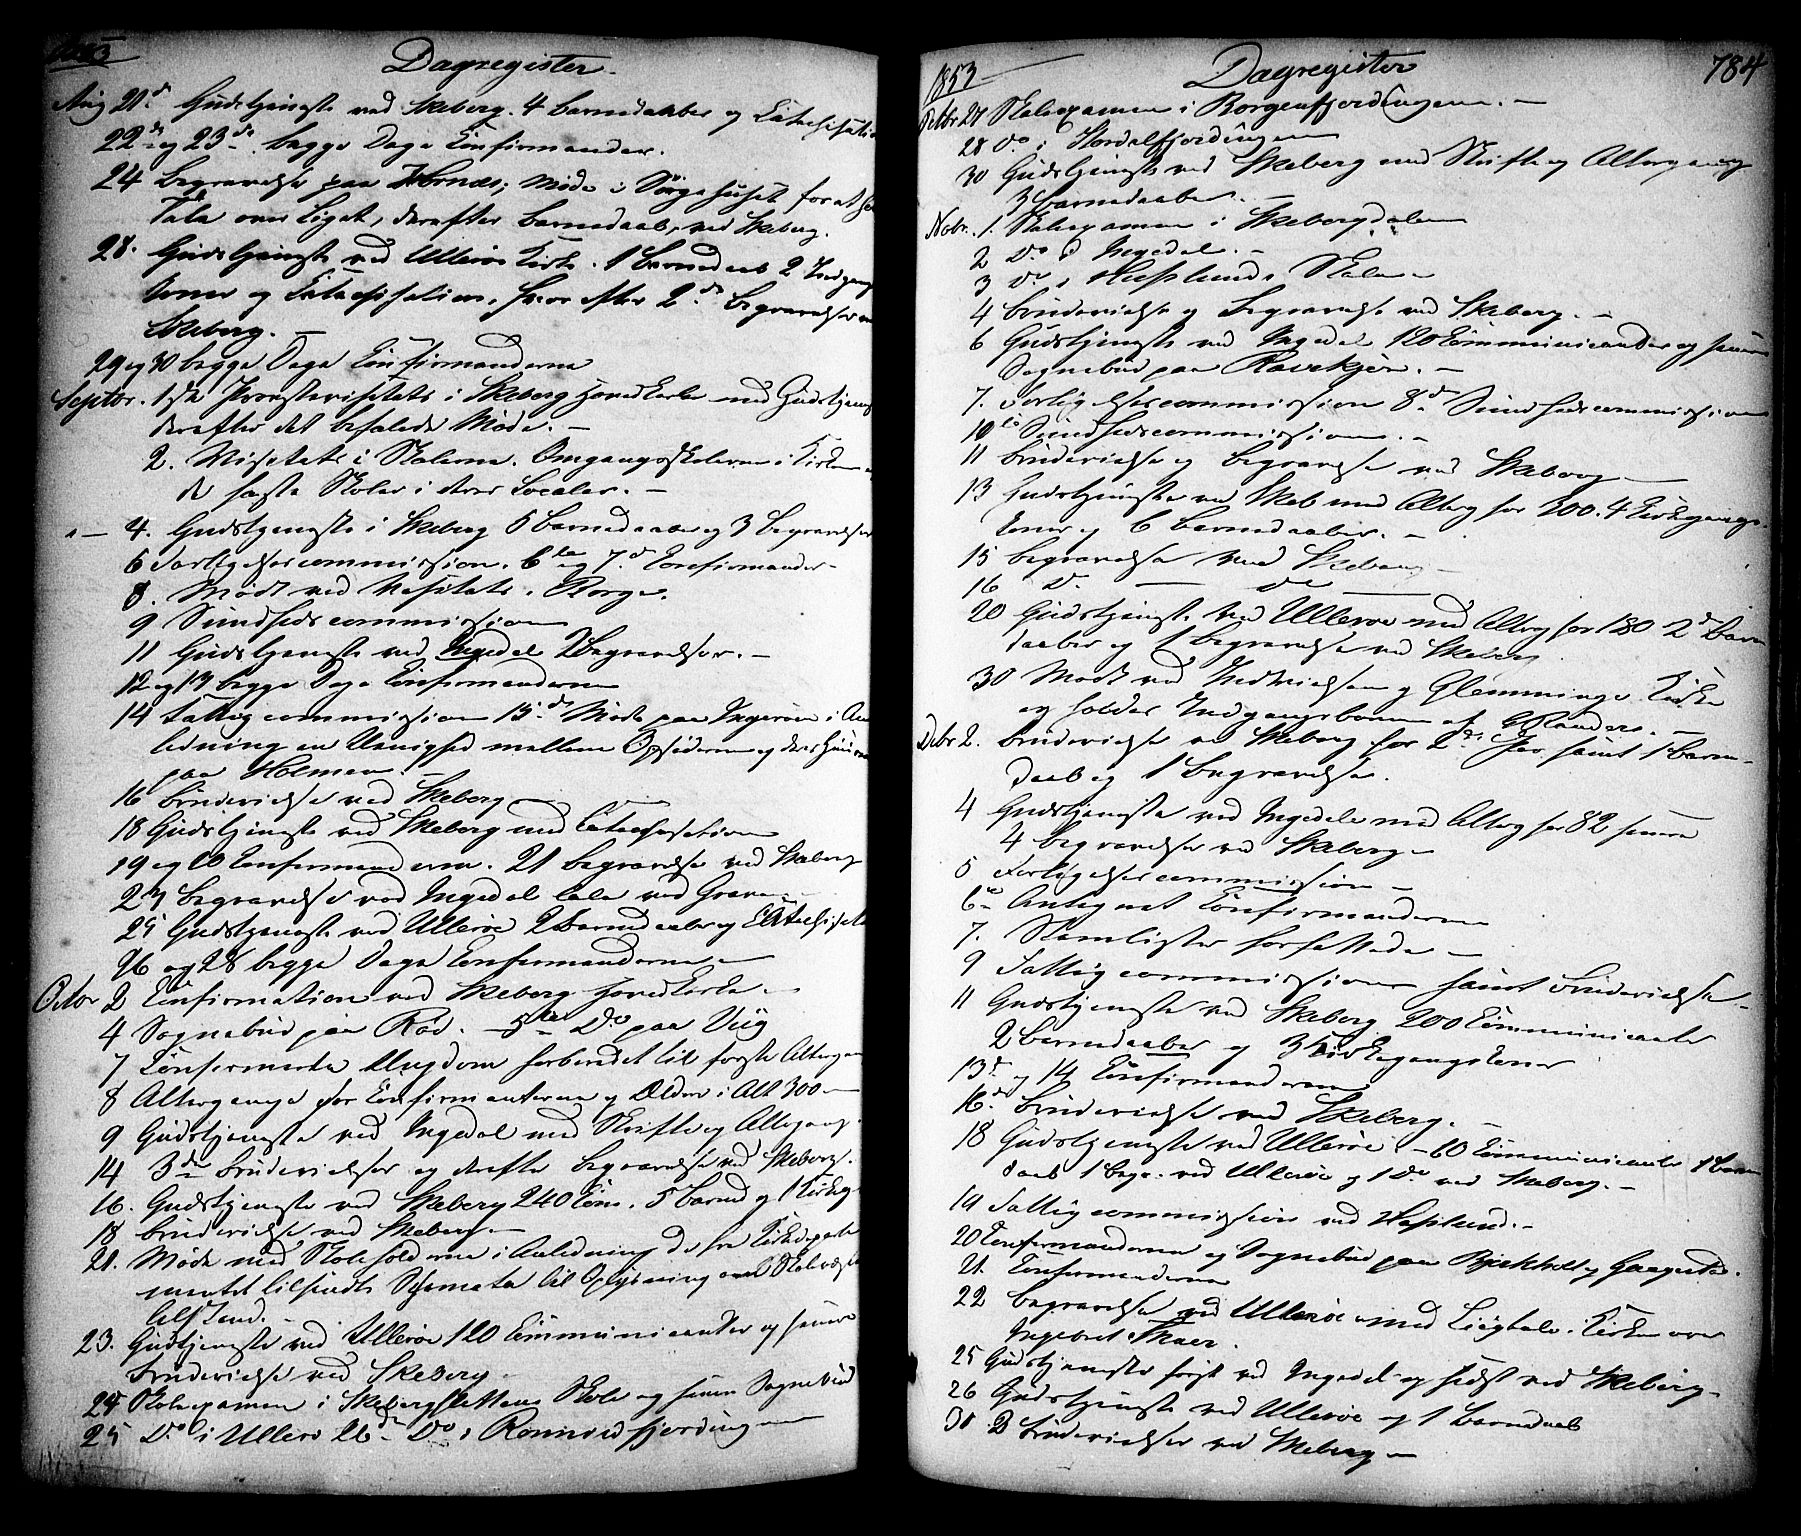 1853
Dagregister.
Aug 21de Gudstjeneste ved Skeberg. 4 Barnedaaber og Catechisation
22de og 23de begge Dage Confirmander.
24 Begravelse paa Hornæs; Møde i Sørgehuset for at h
Tale over Liget, derefter Barnedaab, ved Skeberg.
28. Gudstjeneste ved Ullerøe Kirke. 1 Barnedaab 2 Indgangs
koner og Catechisation, herefter 2de Begravelser ved
Skeberg. —
29 og 30 begge Dage Confirmanderne
Septbr. 1ste Provstevisitats i Skeberg Hovedkirke med Gudstjeneste
derefter det befalede Møde. —
2. Visitats i Skolerne. Omgangsskolerne i Kirken og
de faste Skoler i deres Localer. —
4. Gudstjeneste i Skeberg 5 Barnedaaber og 3 Begravelser
6 Forligelsescommission. 6te og 7de Confirmander —
8. Mødt ved Visitats i Borge.
9 Sundhedscommission
11 Gudstjeneste ved Ingedal 2 Begravelser. —
12 og 13 begge Dage Confirmanderne
14 Fattigcommission 15de Møde paa Ingerøen i An
ledning en Uenighed mellem Opsidderne og deres
paa Holmen.
16 Brudevielse ved Skeberg
18 Gudstjeneste ved Skeberg med Catechisation
19 og 20 Confirmanderne. 21 Begravelse ved Skeberg
23 Begravelse ved Ingedal Tale ved Graven
25 Gudstjeneste ved Ullerøe 2 Barnedaaber og Catechisat
26 og 28 begge Dage Confirmanderne —
Octbr 2 Confirmation ved Skeberg Hovedkirke. —
4 Sognebud paa Rød. — 5te Do paa Viig
7 Confirmerte Ungdom forberedet til første Altergang
8 Altergange for Confirmanterne og Ældre i Alt 300 —
9 Gudstjeneste ved Ingedal med Skrifte og Altergang
14 3de Brudevielser og derefter Begravelse ved Skeberg.
16. Gudstjeneste ved Skeberg 240 Com. 5 Barned og 1 Kirkeg
18 Brudevielse ved Skeberg —
21. Møde med Skoleholderne i Anledning de fra Kirkedeparte
mentet tilsendte Schemata til Oplysning om Skolevæsenets
Tilstand. —
23. Gudstjeneste ved Ullerøe 120 Communicanter og senere
Brudevielse ved Skeberg
24 Skoleexamen i Skebergslettens Skole og senere Sognebud
25 Do i Ullerø 26de Do i Rønnvidfjerding —
1853
Dagregister
784
Octbr 27 Skoleexamen i Borgenfjerdingen. —
28 Do i Hordalfjerdingen
30 Gudstjeneste ved Skeberg med Skrifte og Altergang
3 Barnedaaber. —
Novbr. 1. Skoleexamen i Skebergdalen
2 Do i Ingedal. —
3 Do i Hafslunds Skole —
4 Brudevielse og Begravelse ved Skeberg. —
6 Gudstjeneste ved Ingedal 120 Communicander og senere
Sognebud paa Ravekjær. —
7. Forligelsescommission 8de Sundhedscommission
10de Sundhedscommission. —
11 Brudevielse og Begravelse ved Skeberg —
13 Gudstjeneste ved Skeb med Alterg for 200. 4 Kirkegangs
koner og 6 Barnedaaber. —
15 Begravelse ved Skeberg —
16 Do — Do —
20 Gudstjeneste ved Ullerøe med Alterg for 180 2de Barne
daaber og 1 Begravelse ved Skeberg
30 Mødt ved Indvielsen af Glemminge Kirke
og holdt Indgangsbønnen af G Randers. —
Decbr 2. Brudevielse ved Skeberg for 2de Par, samt 1 Barne
daab og 1 Begravelse.
4 Gudstjeneste ved Ingedal med Alterg for 82 senere
4 Begravelser ved Skeberg —
5 Forligelsescommission —
6te Antegnet Confirmanderne
7. Skamlister forfattede —
9 Fattigcommission samt Brudevielse —
11 Gudstjeneste ved Skeberg 200 Communicanter
2 Barnedaaber og 3 Kirkegangskoner
13de og 14 Confirmanderne
16de Brudevielse ved Skeberg. —
18 Gudstjeneste ved Ullerøe — 60 Communicanter 1 Barne
daab 1 begr. ved Ullerøe og 1 Do ved Skeberg. —
19 Fattigcommission ved Hafslund. —
20 Confirmanderne og Sognebud paa Bjørkholt og Gaagestad.
21. Confirmanderne
22 Begravelse ved Ullerøe med Liigtale i Kirken over
Ingebret Skaar.
25 Gudstjeneste først ved Ingedal og sidst ved Skeberg —
26 Gudstjeneste ved Ullerøe og 1 Barnedaab
30 2 Brudevielser ved Skeberg —